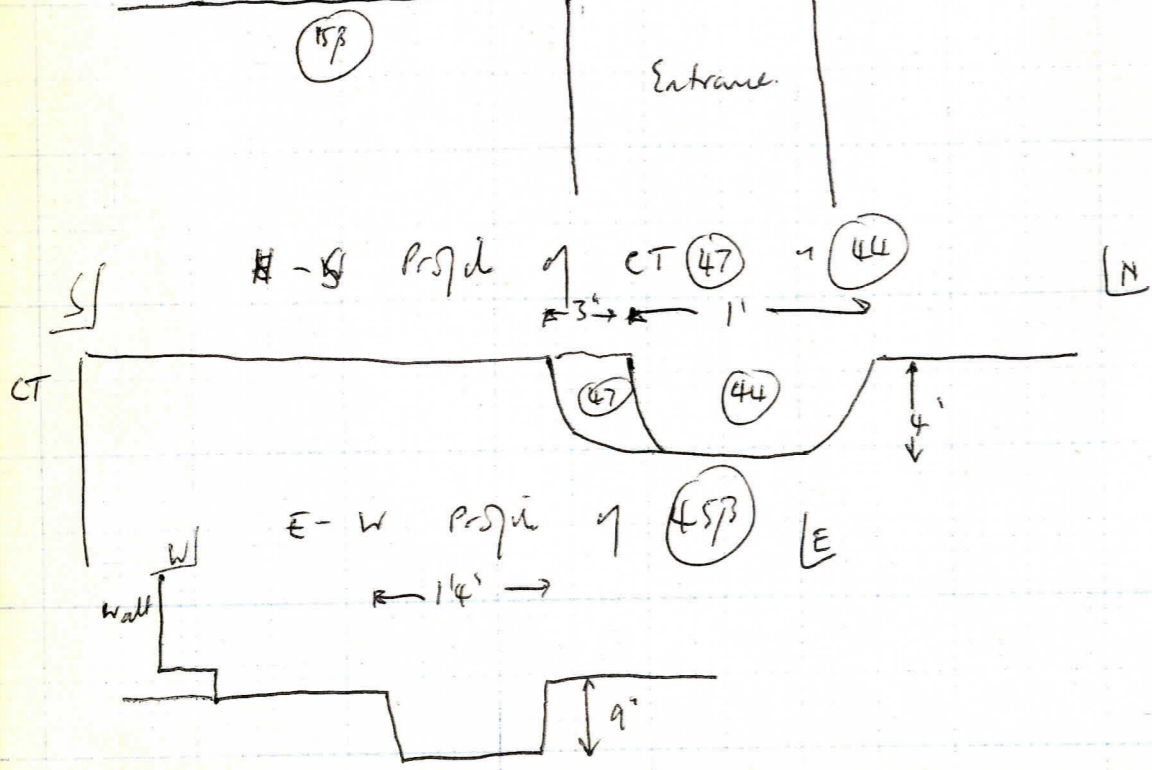 15β
Entrance.
N-S Profile of CT 47 + 44
S
N
3" 1'
CT
47
44
4"
E-W Profile of 45β
W
E
1'4"
Wall
9"